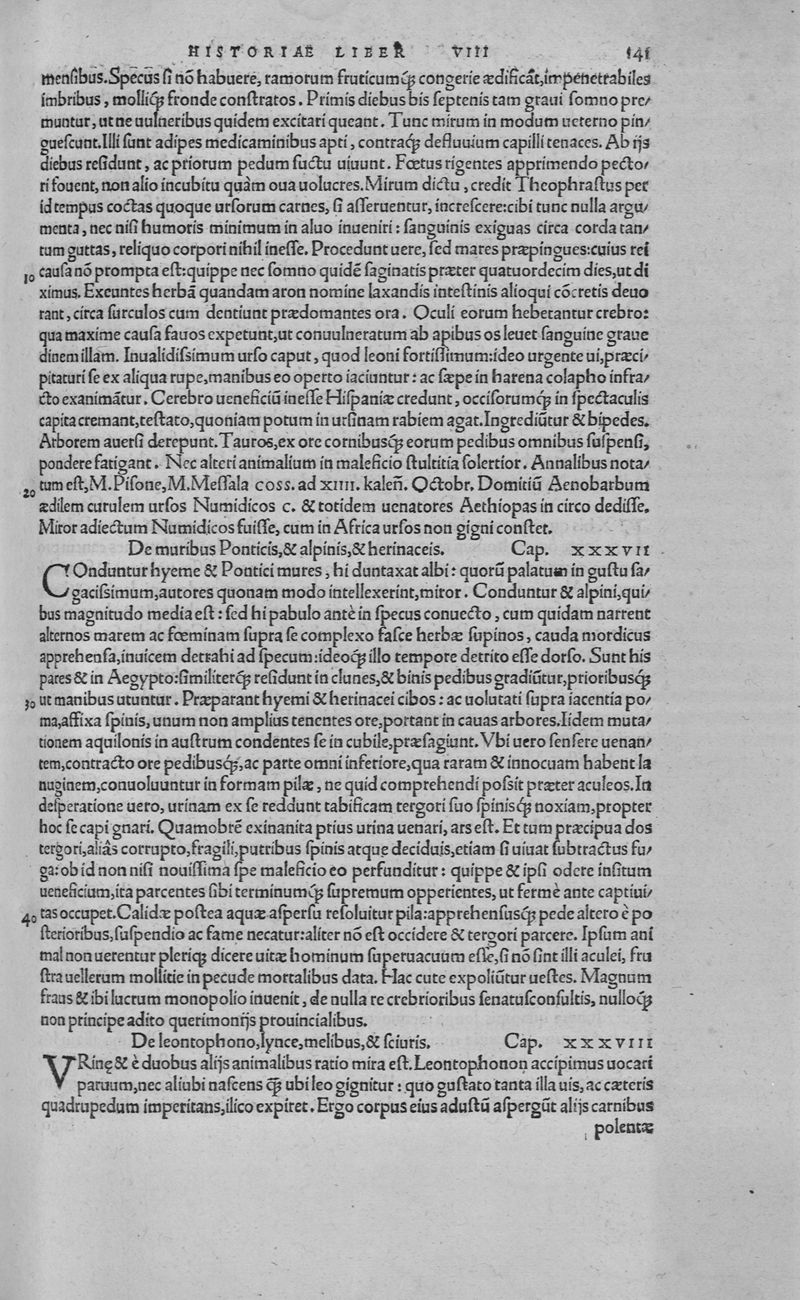 HISTORIAE LIBER VIII 141
mensibus.Specus si nō habuere, ramorum fruticumq́; congerie ædificāt,impenetrabiles
imbribus, molliq́; fronde constratos. Primis diebus bis septenis tam graui somno pre/
muntur, ut ne uulneribus quidem excitari queant. Tunc mirum in modum ueterno pin/
guescunt.Illi sunt adipes medicaminibus apti, contraq́; defluuium capilli tenaces. Ab ijs
diebus residunt, ac priorum pedum suctu uiuunt. Fœtus rigentes apprimendo pecto/
ri fouent, non alio incubitu quàm oua uolucres.Mirum dictu, credit Theophrastus per
id tempus coctas quoque ursorum carnes, si asseruentur, increscere:cibi tunc nulla argu/
menta, nec nisi humoris minimum in aluo inueniri: sanguinis exiguas circa corda tan/
tum guttas, reliquo corpori nihil inesse. Procedunt uere, sed mares præpingues:cuius rei
10 causa nō prompta est:quippe nec somno quidē saginatis præter quatuordecim dies,ut di
ximus. Exeuntes herbā quandam aron nomine laxandis intestinis alioqui cōcretis deuo
rant, circa surculos cum dentiunt prædomantes ora. Oculi eorum hebetantur crebro:
qua maxime causa fauos expetunt,ut conuulneratum ab apibus os leuet sanguine graue
dinem illam. Inualidissimum urso caput, quod leoni fortissimum:ideo urgente ui,præci/
pitaturi se ex aliqua rupe,manibus eo operto iaciuntur: ac sæpe in harena colapho infra/
cto exanimātur. Cerebro ueneficiū inesse Hispaniæ credunt, occisorumq́; in spectaculis
capita cremant,testato,quoniam potum in ursinam rabiem agat.Ingrediūtur & bipedes.
Arborem auersi derepunt.Tauros,ex ore cornibusq́; eorum pedibus omnibus suspensi,
pondere fatigant. Nec alteri animalium in maleficio stultitia solertior. Annalibus nota/
20 tum est,M.Pisone,M.Messala coss. ad XIIII. kaleñ. Octobr. Domitiū Aenobarbum
ædilem curulem ursos Numidicos c. & totidem uenatores Aethiopas in circo dedisse.
Miror adiectum Numidicos fuisse, cum in Africa ursos non gigni constet.
De muribus Ponticis,& alpinis,& herinaceis. Cap. XXXVII
COnduntur hyeme & Pontici mures, hi duntaxat albi: quorū palatum in gustu sa/
gacissimum,autores quonam modo intellexerint,miror. Conduntur & alpini,qui/
bus magnitudo media est: sed hi pabulo antè in specus conuecto, cum quidam narrent
alternos marem ac fœminam supra se complexo fasce herbæ supinos, cauda mordicus
apprehensa,inuicem detrahi ad specum:ideoq́; illo tempore detrito esse dorso. Sunt his
pares & in Aegypto:similiterq́; residunt in clunes,& binis pedibus gradiūtur,prioribusq́;
30 ut manibus utuntur. Præparant hyemi & herinacei cibos: ac uolutati supra iacentia po/
ma,affixa spinis,unum non amplius tenentes ore,portant in cauas arbores.Iidem muta/
tionem aquilonis in austrum condentes se in cubile,præsagiunt. Vbi uero sensere uenan/
tem,contracto ore pedibusq́;,ac parte omni inferiore,qua raram & innocuam habent la
nuginem,conuoluuntur in formam pilæ, ne quid comprehendi possit præter aculeos.In
desperatione uero, urinam ex se reddunt tabificam tergori suo spinisq́; noxiam,propter
hoc se capi gnari. Quamobrē exinanita prius urina uenari, ars est. Et tum præcipua dos
tergori,aliâs corrupto,fragili,putribus spinis atque deciduis,etiam si uiuat subtractus fu/
ga:ob id non nisi nouissima spe maleficio eo perfunditur: quippe & ipsi odere insitum
ueneficium,ita parcentes sibi terminumq́; supremum opperientes, ut fermè ante captiui/
40 tas occupet.Calidæ postea aquæ aspersu resoluitur pila:apprehensusq́; pede altero è po
sterioribus,suspendio ac fame necatur:aliter nō est occidere & tergori parcere. Ipsum ani
mal non uerentur pleriq́; dicere uitæ hominum superuacuum esse,si nō sint illi aculei, fru
stra uellerum mollitie in pecude mortalibus data. Hac cute expoliūtur uestes. Magnum
fraus & ibi lucrum monopolio inuenit, de nulla re crebrioribus senatusconsultis, nulloq́;
non principe adito querimonijs prouincialibus.
De leontophono,lynce,melibus,& sciuris. Cap. XXXVIII
VRinę & è duobus alijs animalibus ratio mira est.Leontophonon accipimus uocari
paruum,nec aliubi nascens q̄; ubi leo gignitur: quo gustato tanta illa uis, ac cæteris
quadrupedum imperitans,ilico expiret. Ergo corpus eius adustū aspergūt alijs carnibus
polentæ